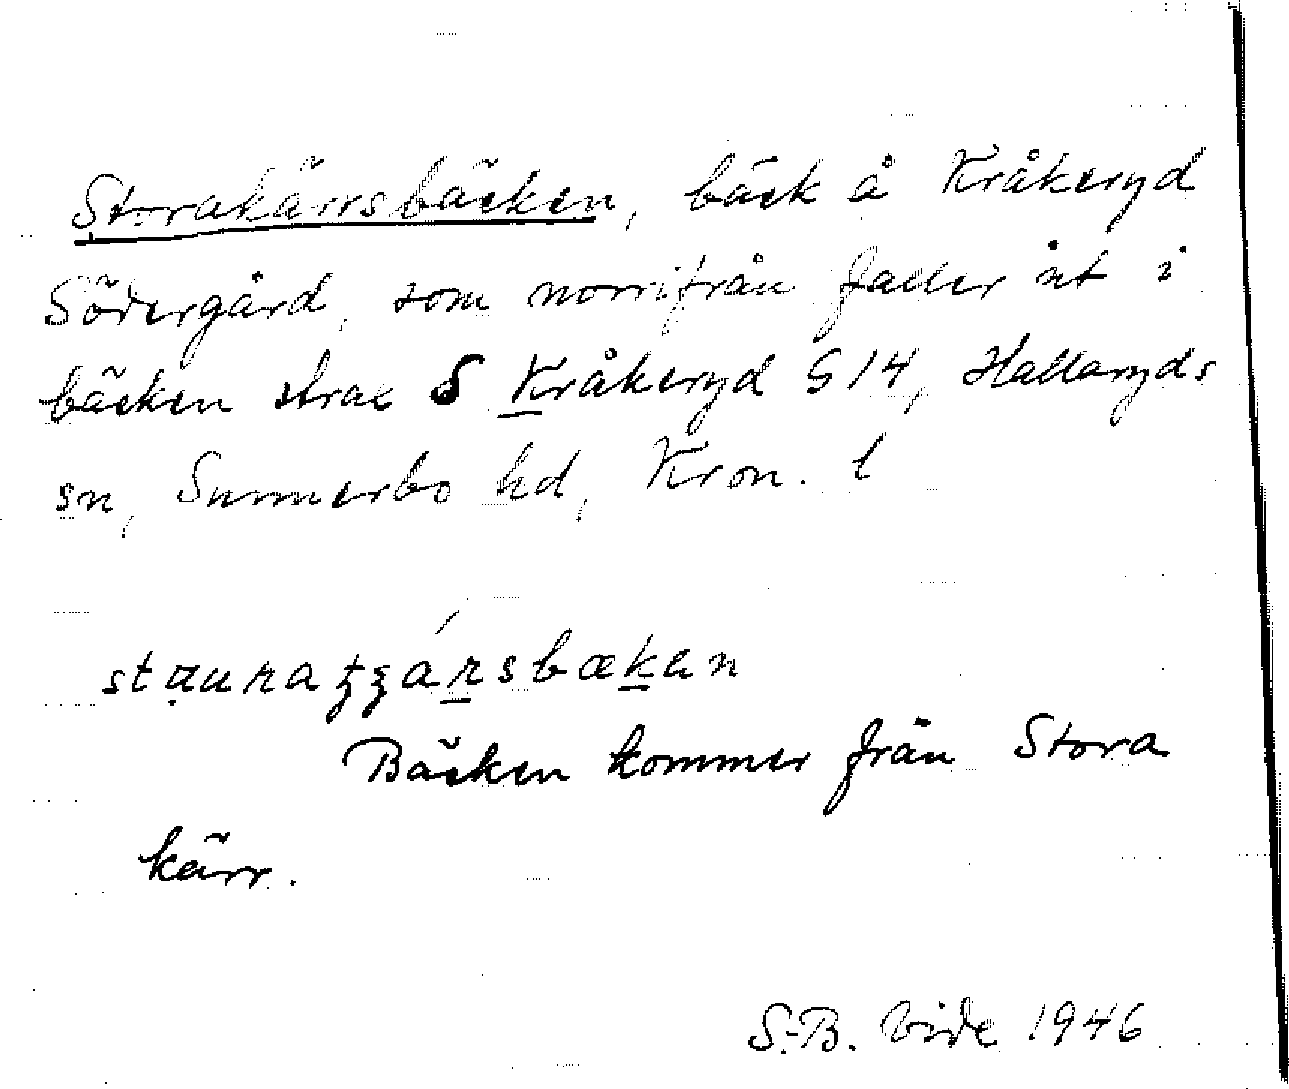 Storakärrsbäcken, bäck å Kråkeryd
Södergård, som norrifrån faller ut i
bäcken strax S Kråkeryd S 14, Hallaryds
sn, Sunnerbo hd, Kron. l
Bäcken kommer från Stora
kärr.
S.-B. Vide 1946